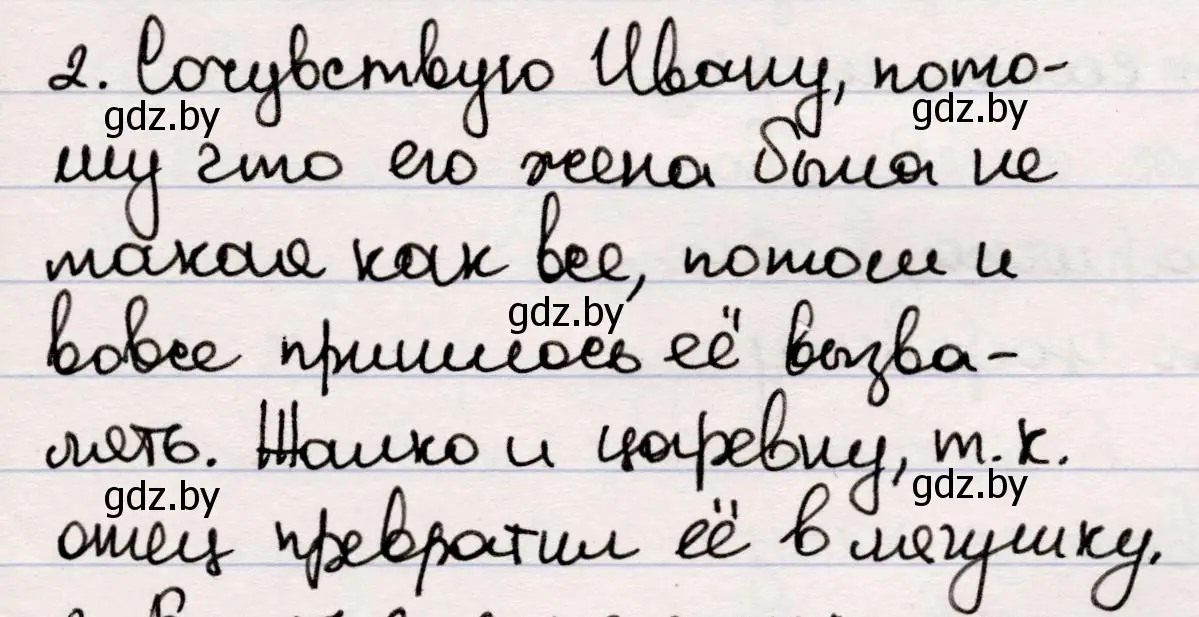 2. Сочувствую Ивану, пото-
му что его жена была не
такая как все, потом и
вовсе пришлось её вызва-
лять. Жалко и царевну, т.к.
отец превратил её в лягушку.
gdz.by
gdz.by
gdz.by
gdz.by
gdz.by